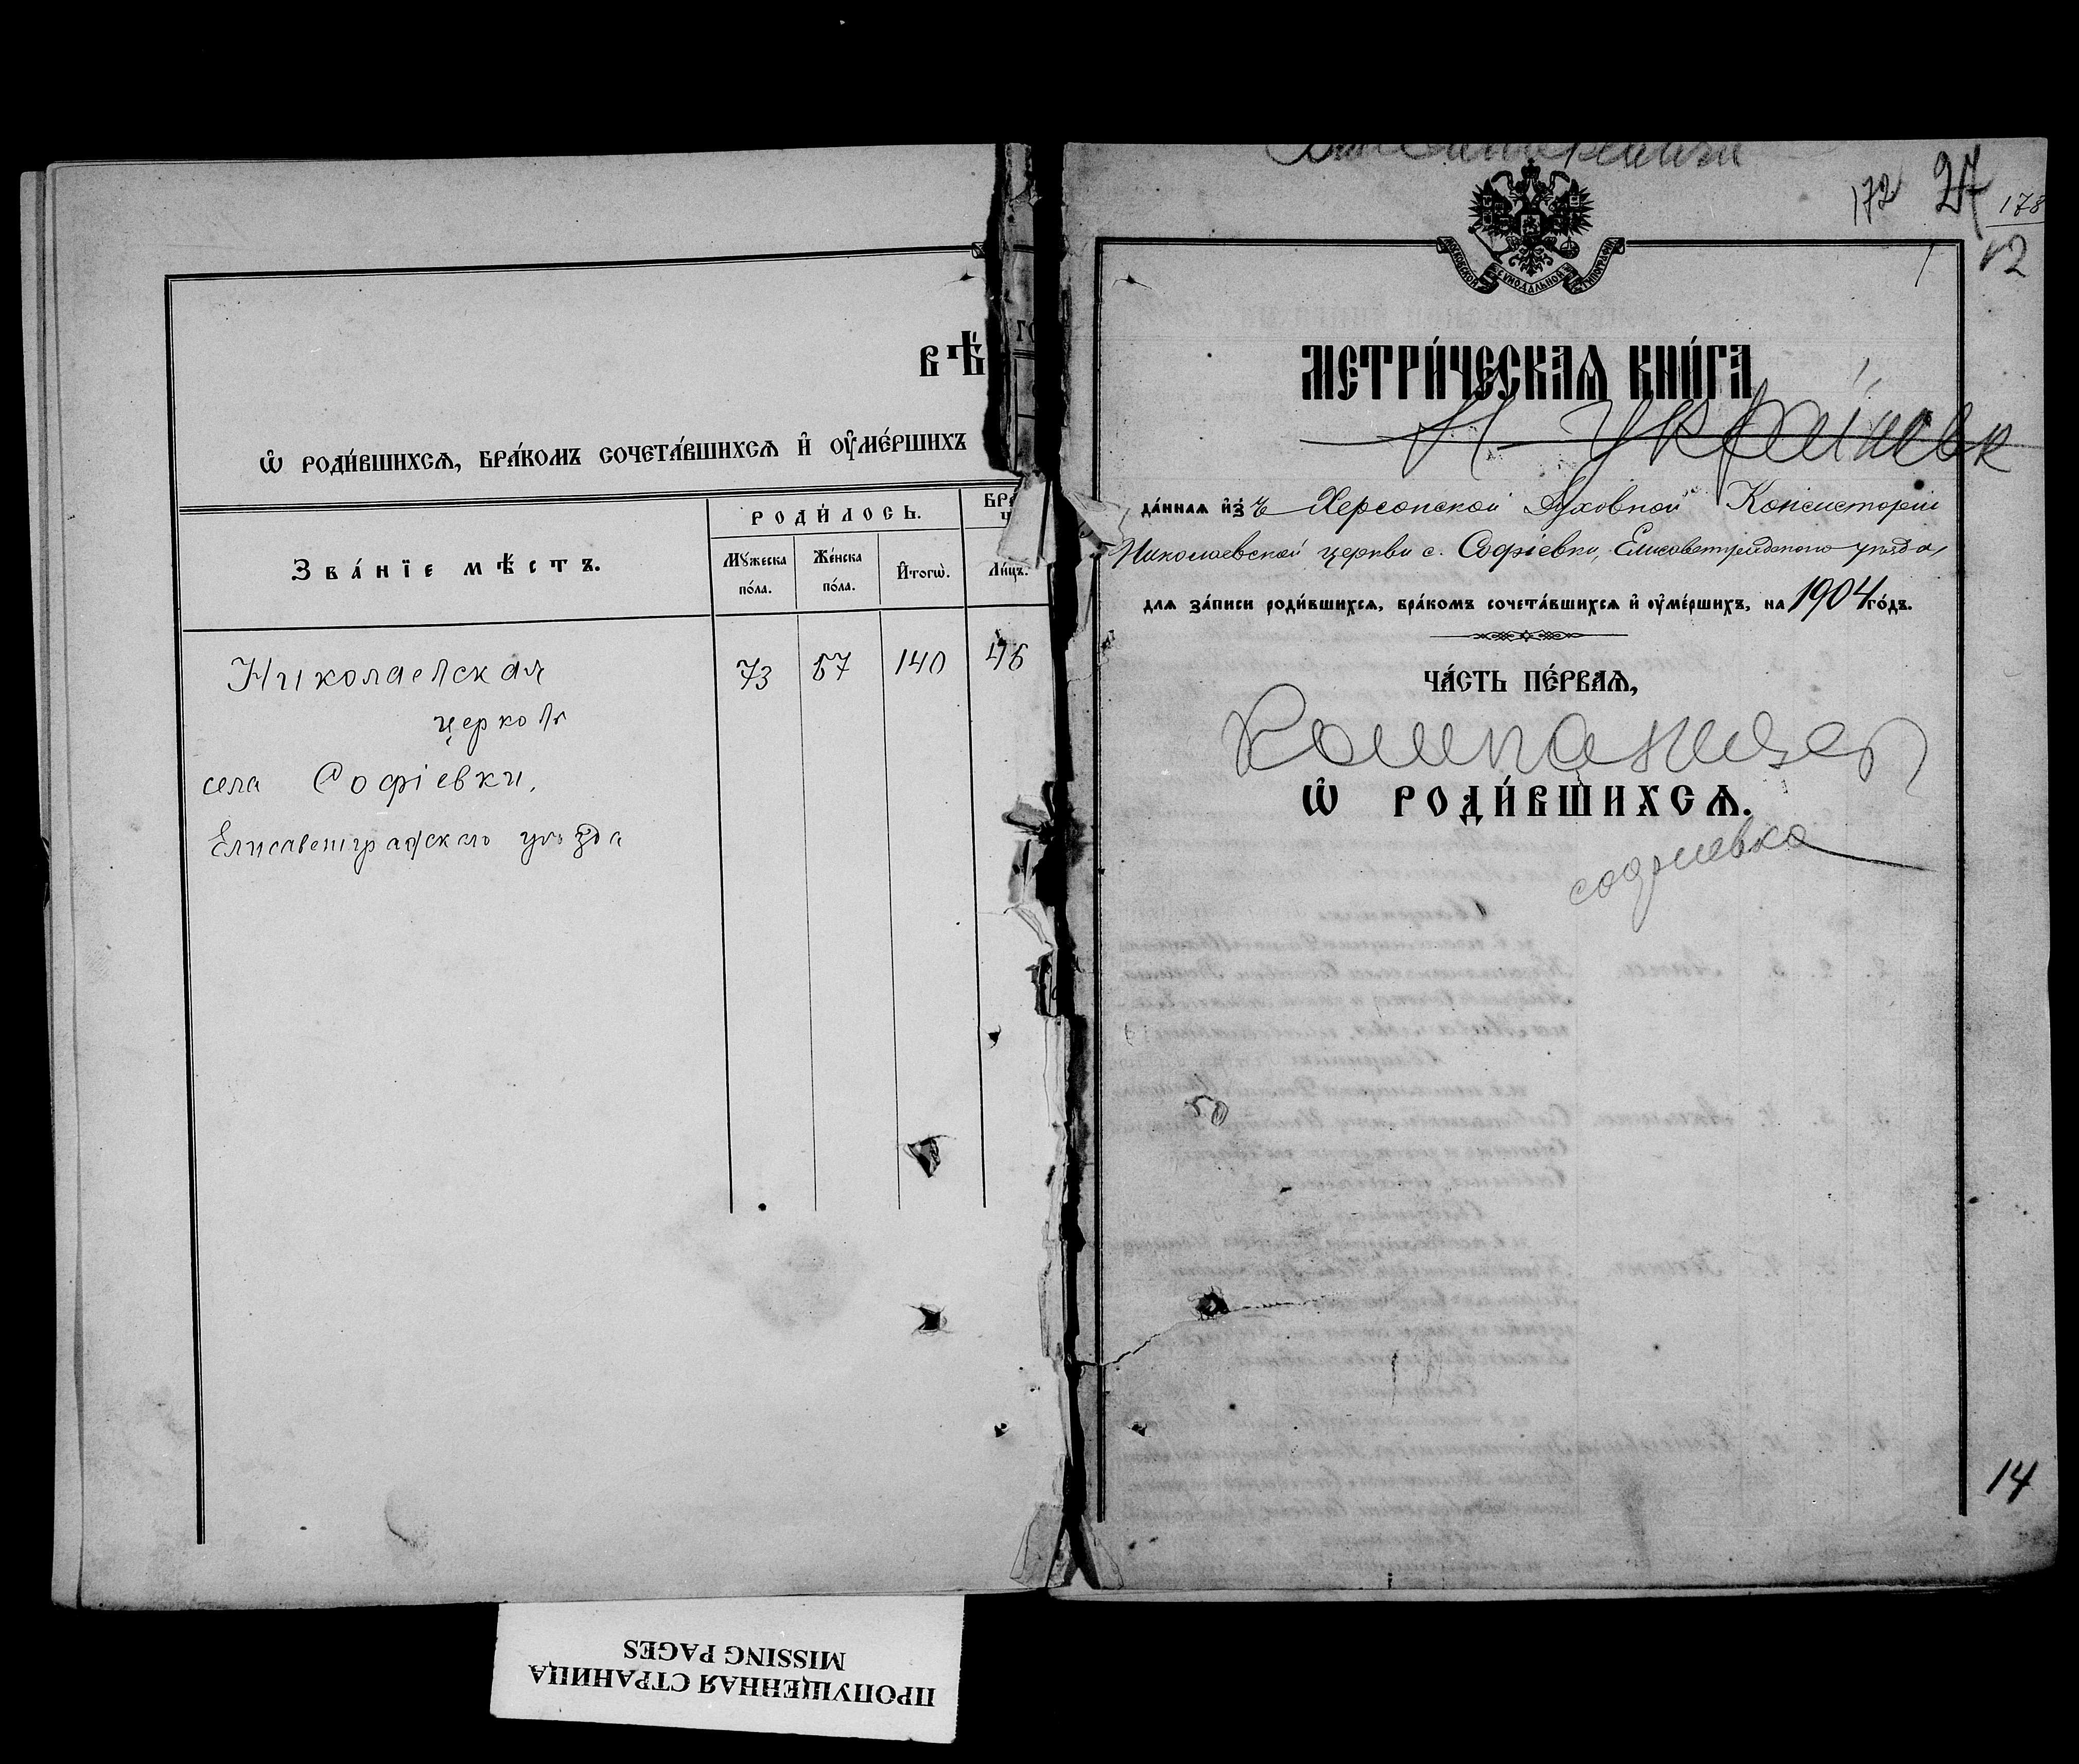 ВѢ
Ѡ РОДИ́ВШИХСѦ, БРА́КОМЪ СОЧЕТА́ВШИХСѦ И҆ ОУ҆МЕ́РШИХЪ
РОДИ́ЛОСЬ.
ЗВА́НЇЕ МѢ́СТЪ.
Мꙋ́жеска по́ла.
Же́нска по́ла.
И҆тогѡ̀.
Ли́цъ.
Николаевская 73 67 140 46
церковь
села Софіевки,
Елисаветградскаго уѣзда
172 24 178
МОСКОВСКОЙ СѴНОДАЛЬНОЙ ТИПОГРАФІИ
МЕТРИ́ЧЕСКАѦ КНИ́ГА
да́ннаѧ и҆зъ Херсонской Духовной Консисторіи
Николаевской церкви с. Софіевки, Елисаветградскаго уѣзда,
длѧ за́писи роди́вшихсѧ, бра́комъ сочета́вшихсѧ и҆ оу҆ме́ршихъ, на 1904 го́дъ.
ЧА́СТЬ ПЕ́РВАѦ,
Компанеев
Ѡ РОДИ́ВШИХСѦ.
софиевка
14
ПРОПУЩЕННАЯ СТРАНИЦА
MISSING PAGES